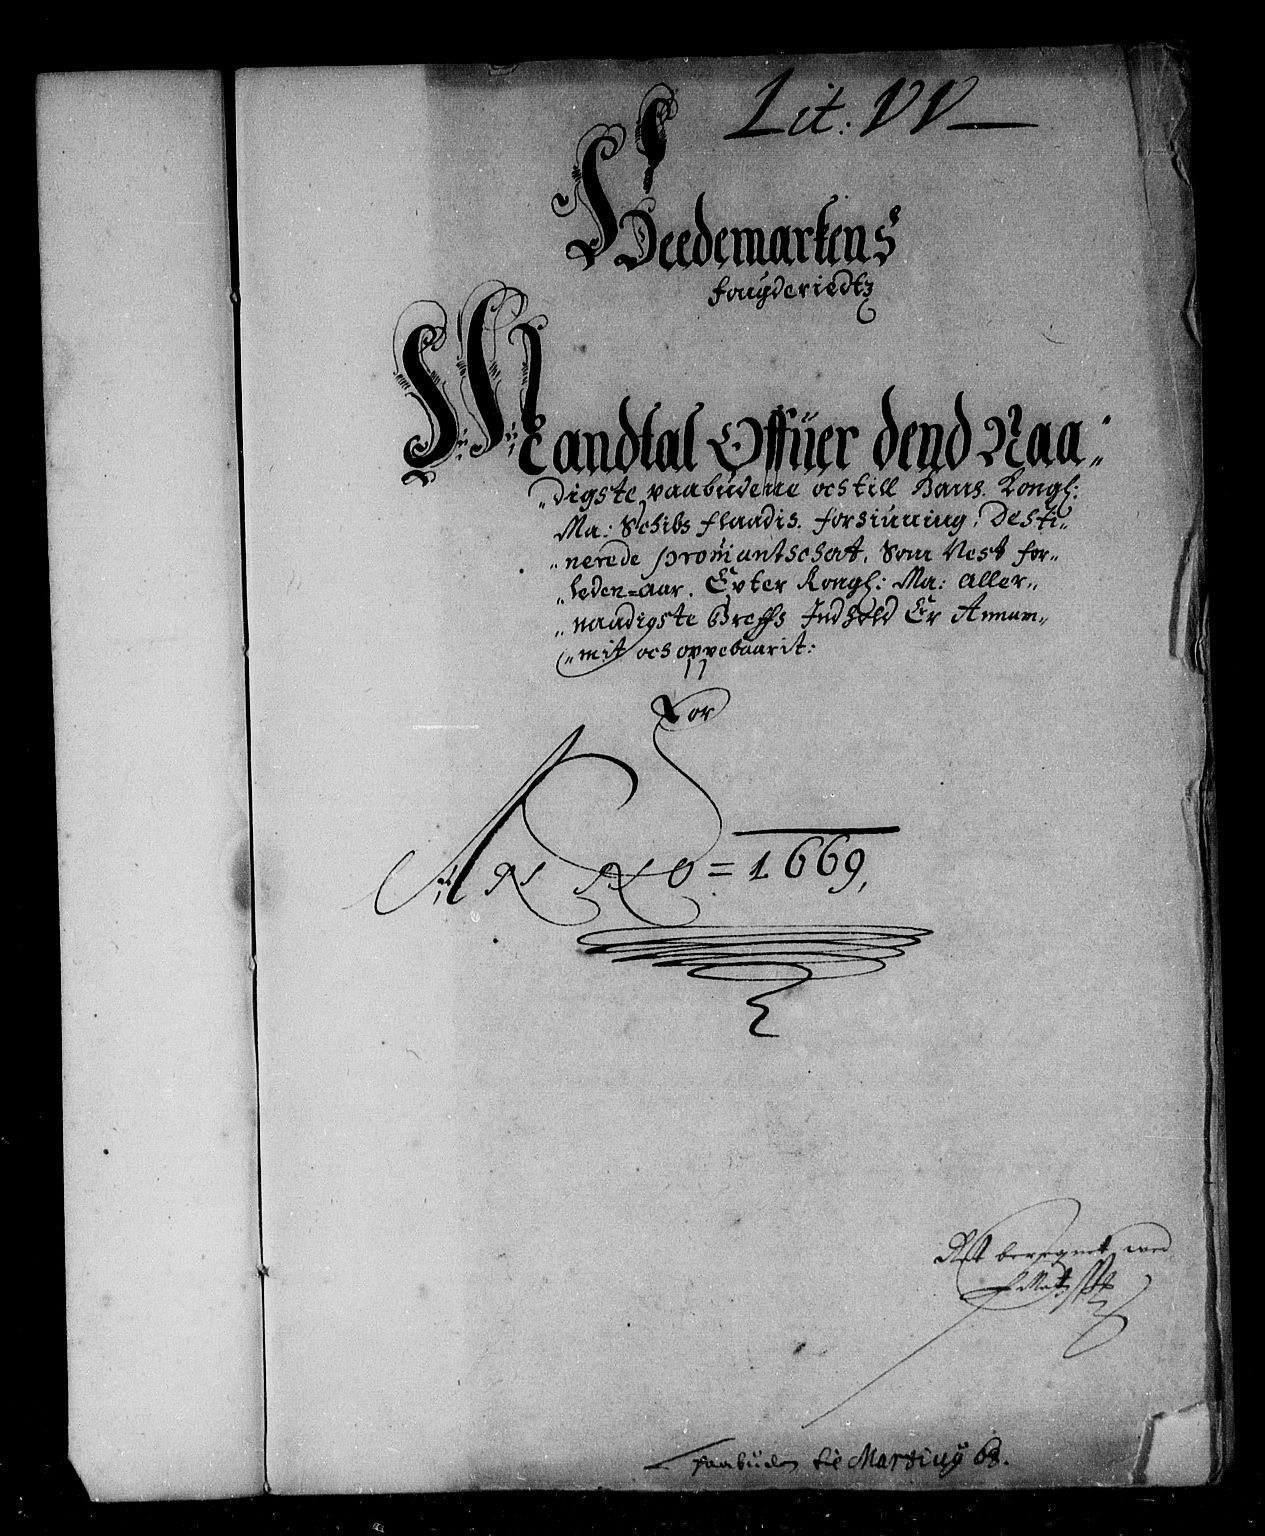 Lit: VV
Heedemarkens
fougderiedtz
Mandtal Offuer dend Naa„
„digste paabudene och till Hans. Kongl:
Ma: Schibs flaadis. forsiuning, Desti„
„nerede promantschat, Som Nest for„
„leden=aar. Epter Kongl: Ma: Aller„
„naadigste Breffs Indhold Er Annam„
„mit och oppebaarit:
For
ANNO = 1669,
Ret beregnet, wed
paabuden die Marzius 68.